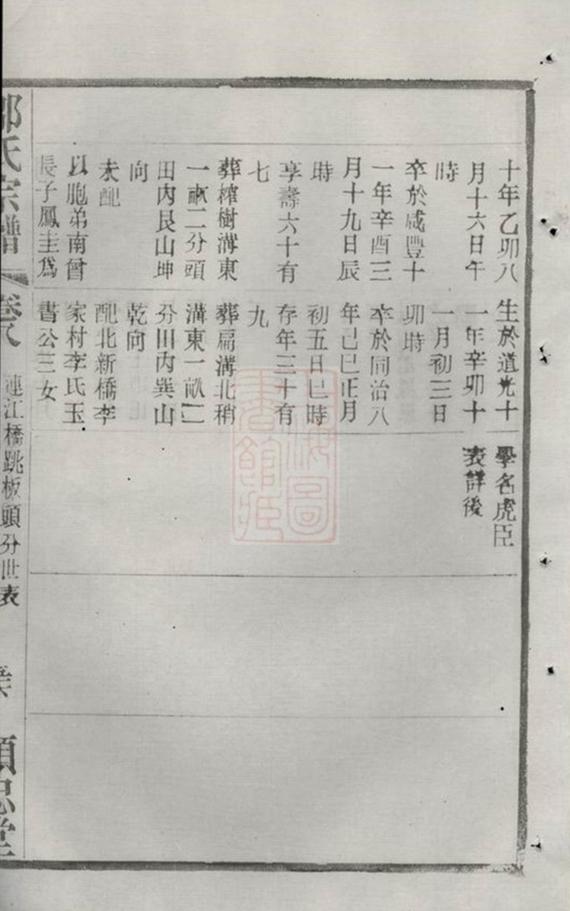 十年乙卯八
月十六日午
時
卒於咸豐十
一年辛酉三
月十九日辰
時
享壽六十有
七
葬榨樹溝東
一畝二分頭
田內艮山坤
向
未配
以胞弟南曾
長子鳳圭爲
生於道光十
一年辛卯十
一月初三日
卯時
卒於同治八
年己巳正月
初五日巳時
存年三十有
九
葬扁溝北稍
溝東一畝二
分田內巽山
乾向
配北新橋李
家村李氏玉
書公三女
學名虎臣
表詳後
氏宗譜
卷
連江橋跳板頭分世表
思堂
上海圖書館藏